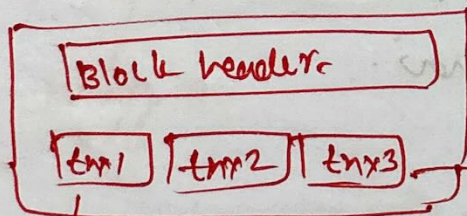 Block header.
tnx1 tnx2 tnx3